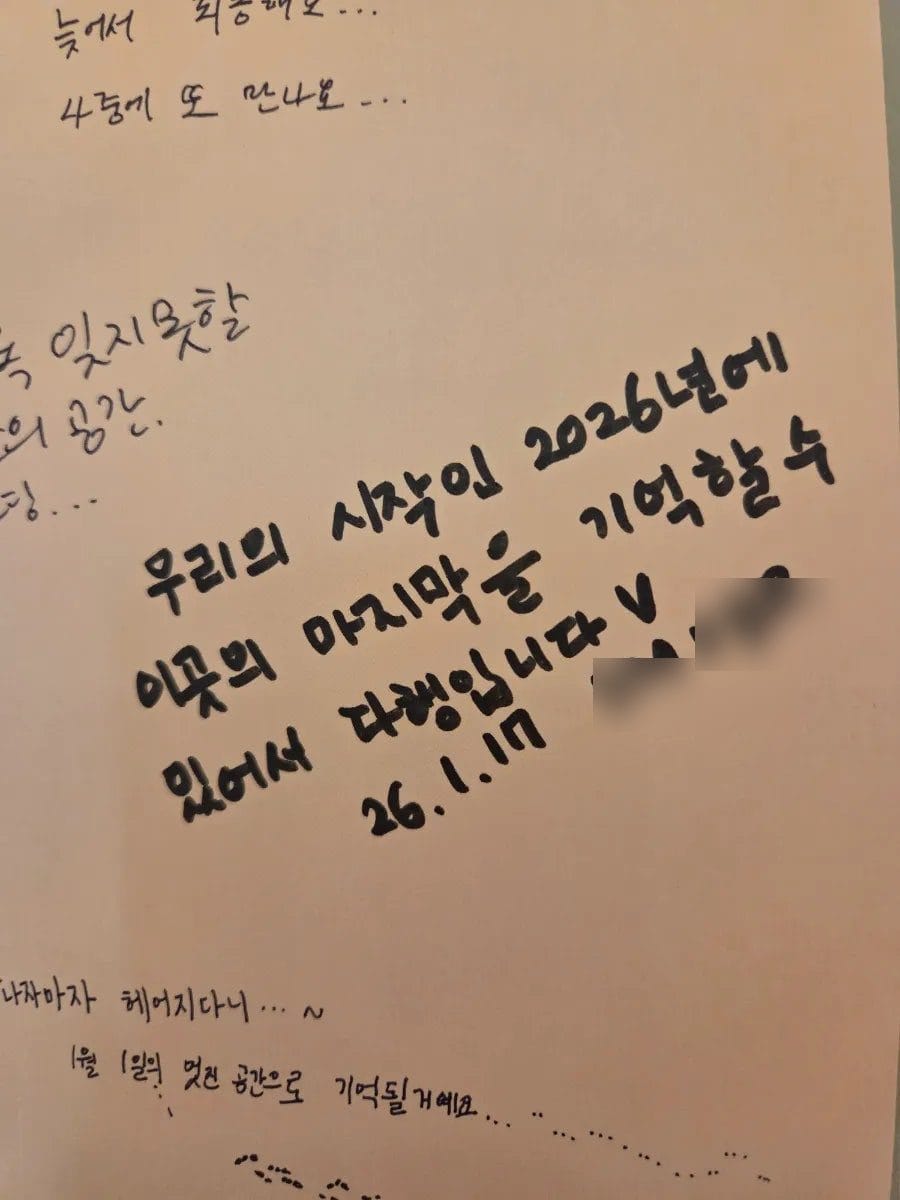 늦어서 죄송해요...
4층에 또 만나요...
잊지못할
공간.
우리의 시작인 2026년에
이곳의 마지막을 기억할 수
있어서 다행입니다 V
26.1.17
나자마자 헤어지다니...~
1월 1일의 멋진 공간으로 기억될거예요...